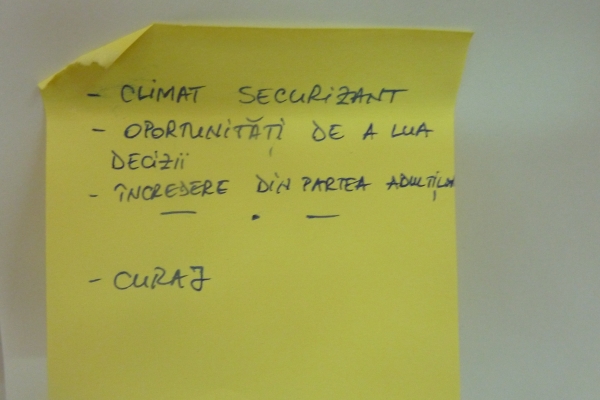 - CLIMAT SECURIZANT
- OPORTUNITĂȚI DE A LUA
DECIZII
- ÎNCREDERE DIN PARTEA ADULȚILOR
- CURAJ